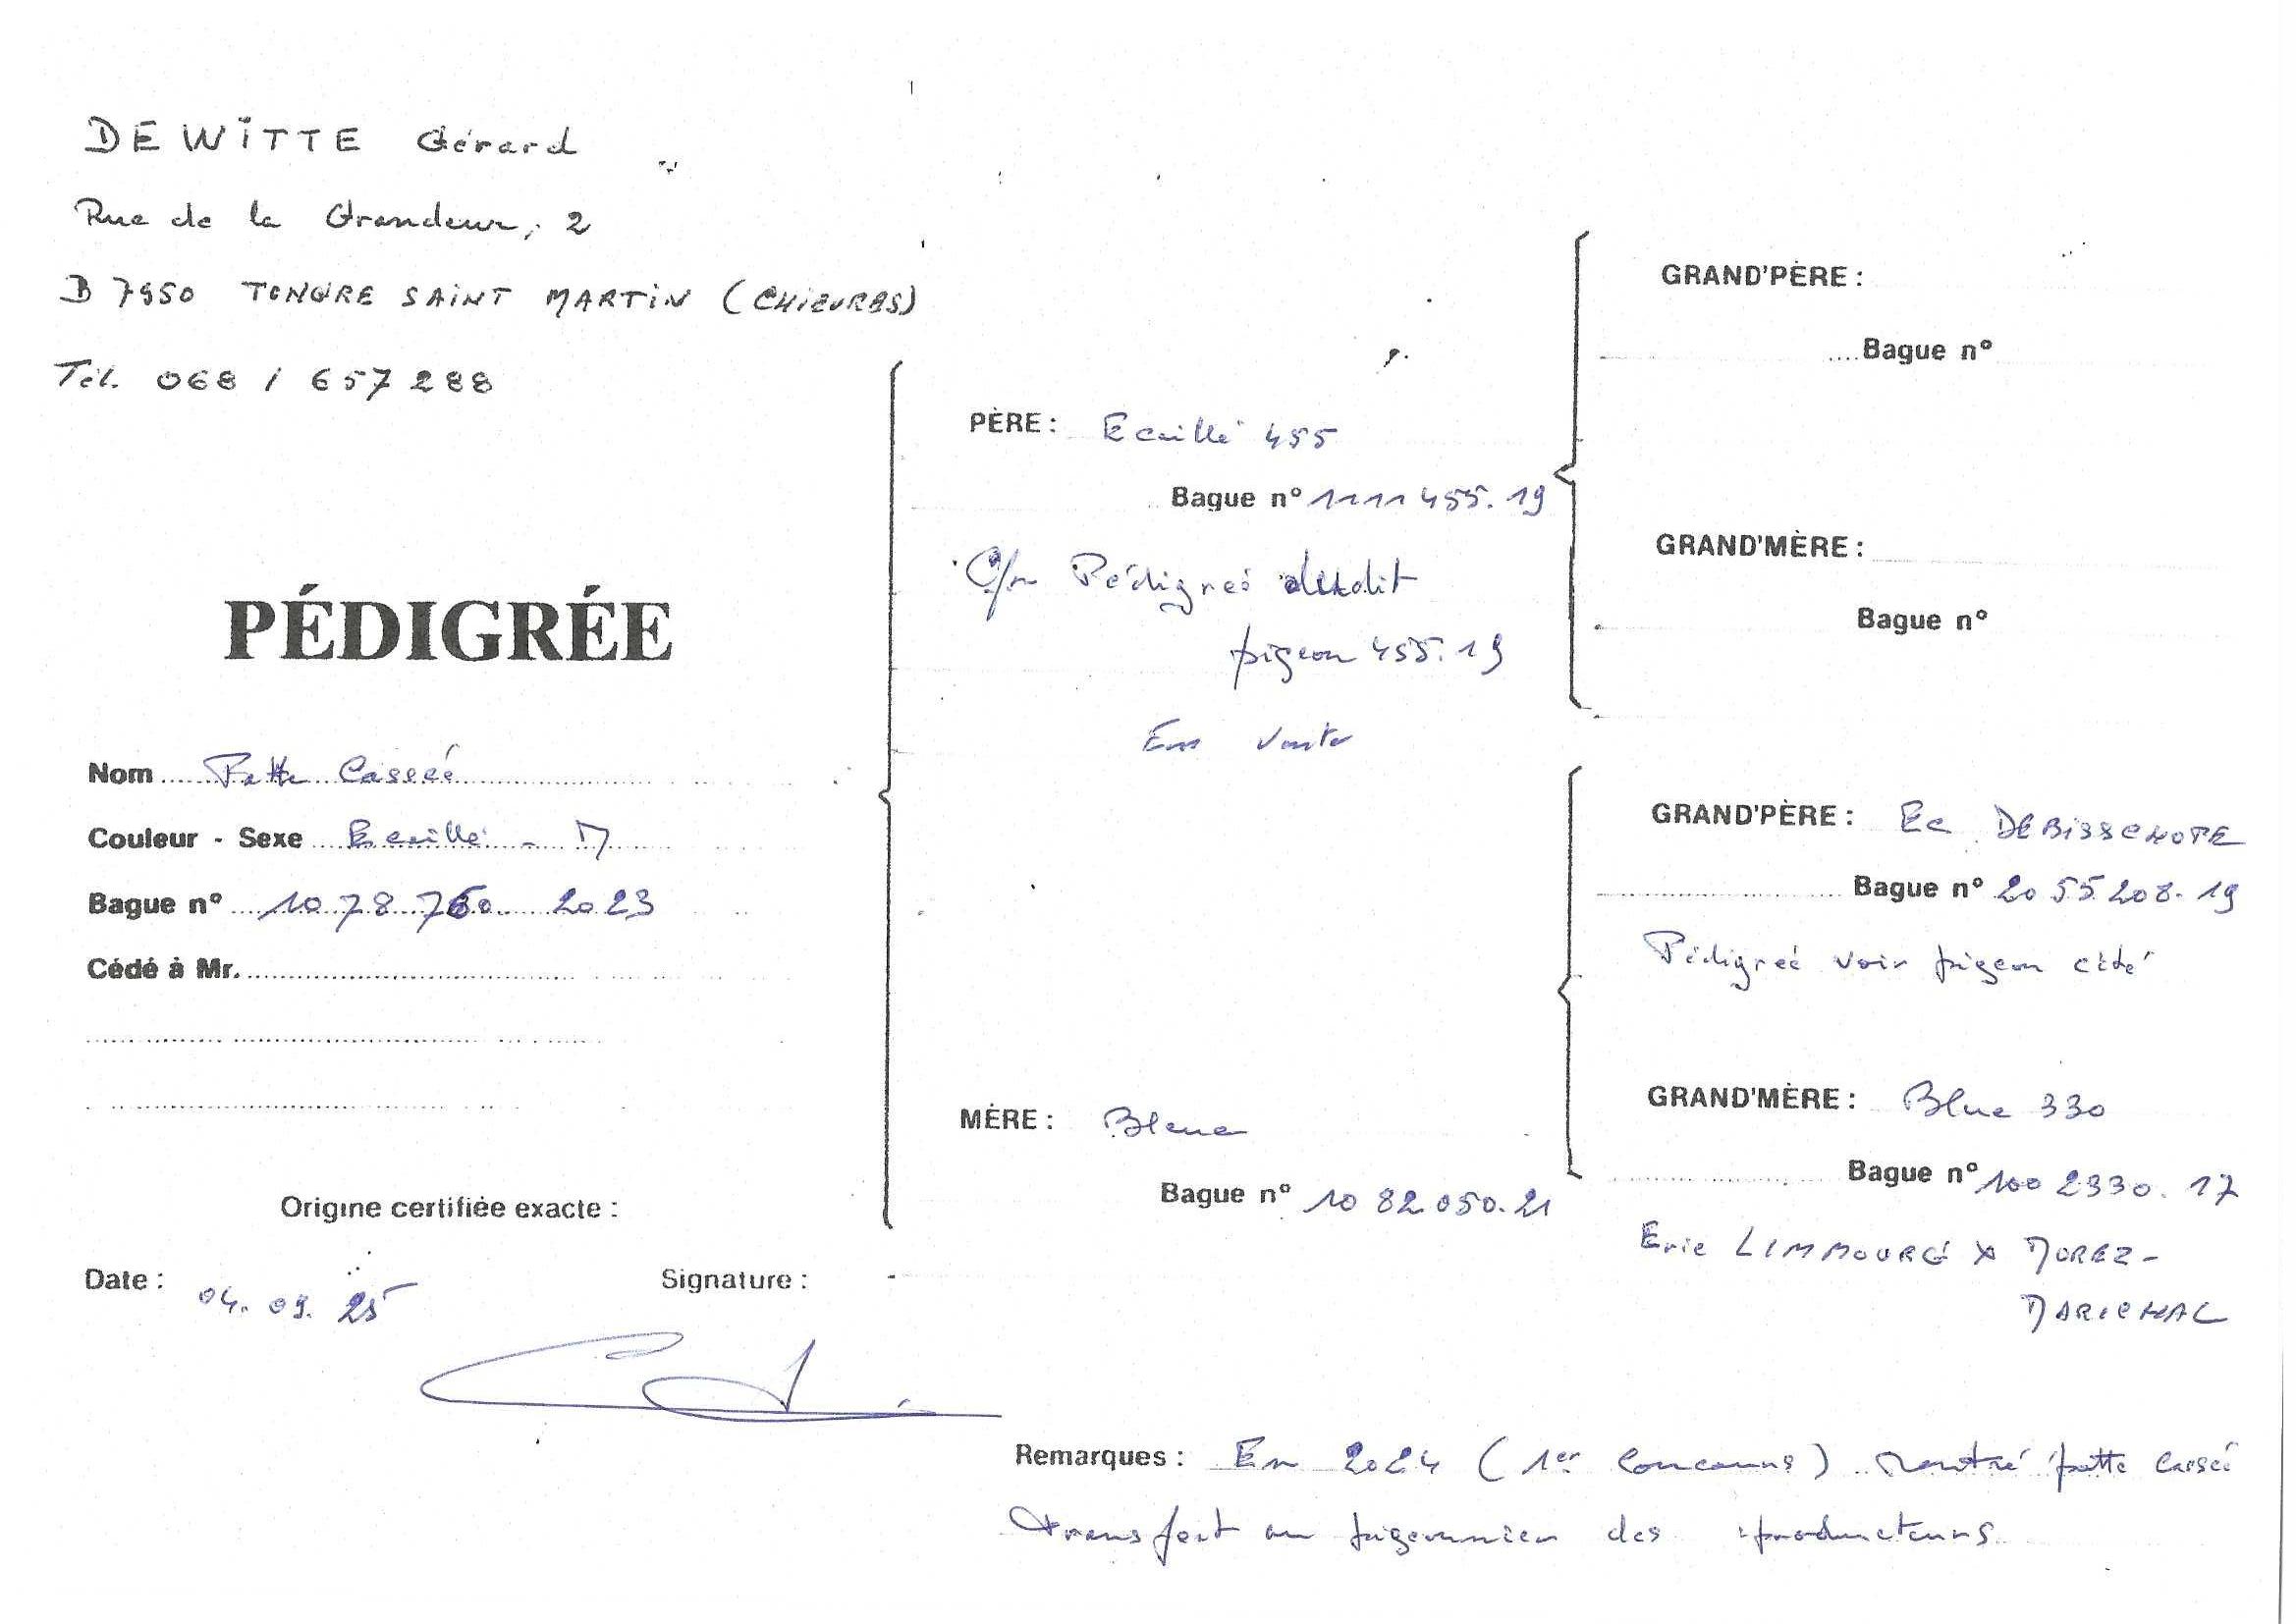 DEWITTE Gérard
Rue de la Grandeur, 2
B 7950 TONGRE SAINT MARTIN (CHIEVRES)
Tél. 068 / 657288
PÉDIGRÉE
Nom Patte Cassée
Couleur - Sexe Ecaillé - M
Bague n° 1078760 2023
Cédé à Mr.
Origine certifiée exacte :
Date : 04.09.25
Signature :
PÈRE : Ecaillé 455
Bague n° 1111455.19
Pédigreé dudit
pigeon 455.19
En vente
MÈRE : Bleue
Bague n° 1082050.21
GRAND'PÈRE :
Bague n°
GRAND'MÈRE :
Bague n°
GRAND'PÈRE : Ec DEBISSCHOPE
Bague n° 2055208.19
Pédigreé voir pigeon cité
GRAND'MÈRE : Blue 330
Bague n° 1002330.17
Eric LIMMOURG x MOREZ-
MARICHAL
Remarques : En 2024 (1er Concours) rentré patte cassé
transfert au pigeonnier des producteurs